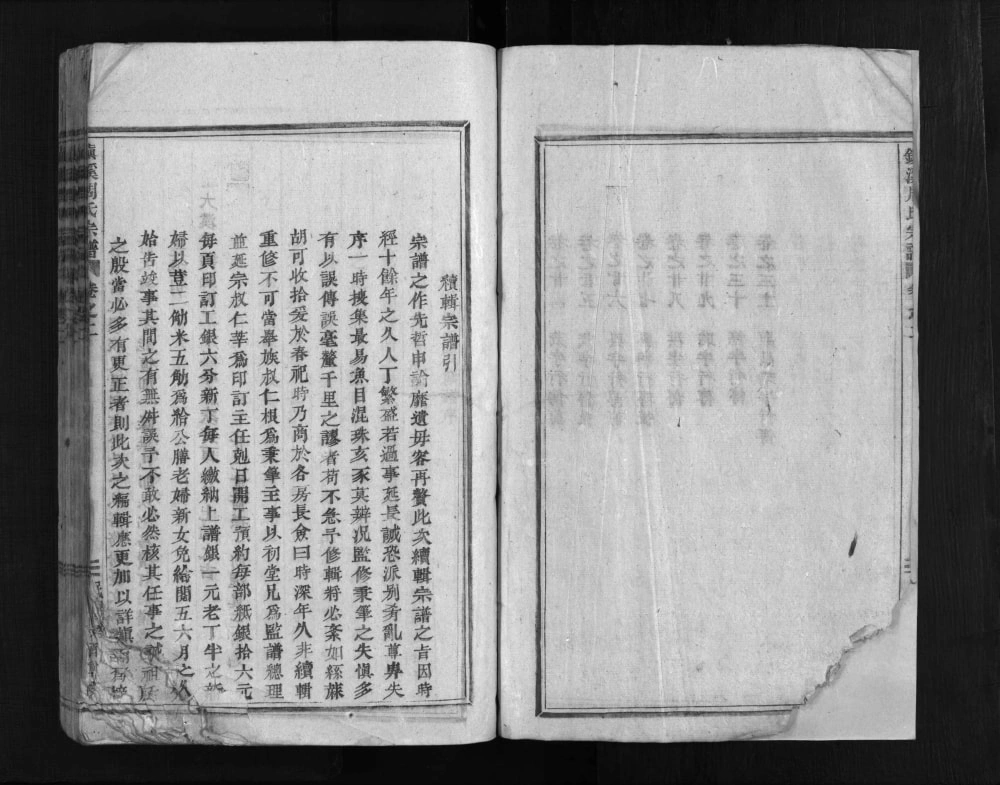 續輯宗譜引
宗譜之作先哲申論靡遺毋容再贅此次續輯宗譜之古因時
經十餘年之久人丁繁盛若過事延長誠恐派別肴亂尊卑失
序一時搜集最易魚目混珠亥豕莫辨况監修秉筆之失愼多
有以誤傳誤毫釐千里之謬者苟不急予修輯將必紊如絲蔴
胡可收拾爰於春祀時乃商於各房長僉曰時深年久非續輯
重修不可當舉族叔仁根爲秉筆主事以初堂兄爲監譜總理
並延宗叔仁莘爲印訂主任剋日開工預約每部紙銀拾六元
每頁印訂工銀六分新丁每人繳納上譜銀一元老丁半之新
婦以荳二觔米五觔爲給公膳老婦新女免給閱五六月之久
始告竣事其間之有無舛誤予不敢必然核其任事之誠
之殷當必多有更正者則此次之編輯應更加以詳愼
溪周氏宗譜
卷之二
溪周氏宗譜